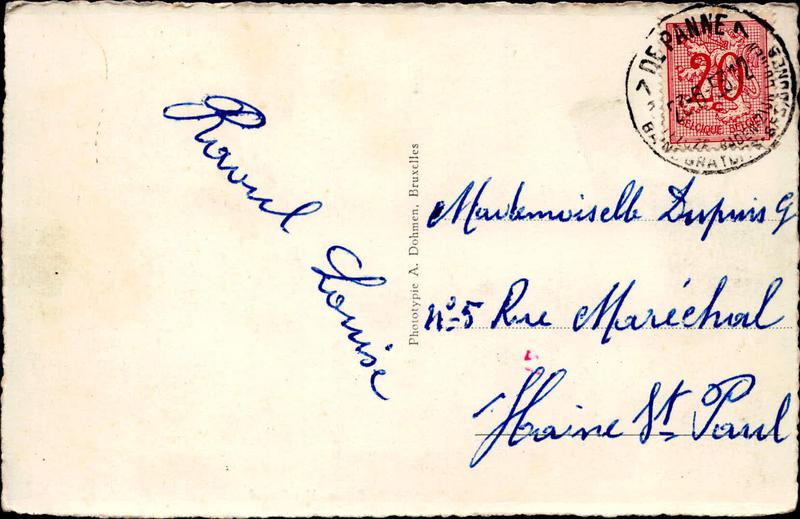 Raoul
Louise
Phototypie A. Dohmen, Bruxelles
DE PANNE
20
BELGIQUE BELGIE
Mademoiselle Dupuis G
n°-5 Rue Maréchal
Haine St Paul